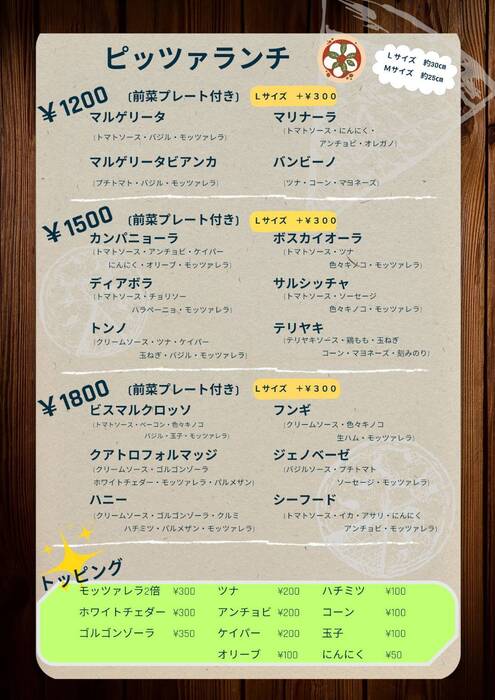 ピッツァランチ
Lサイズ 約30㎝
Mサイズ 約25㎝
￥1200 (前菜プレート付き) Lサイズ ＋￥３００
マルゲリータ
(トマトソース・バジル・モッツァレラ)
マリナーラ
(トマトソース・にんにく・
アンチョビ・オレガノ)
マルゲリータビアンカ
(プチトマト・バジル・モッツァレラ)
バンビーノ
(ツナ・コーン・マヨネーズ)
￥1500 (前菜プレート付き) Lサイズ ＋￥３００
カンパニョーラ
(トマトソース・アンチョビ・ケイパー
にんにく・オリーブ・モッツァレラ)
ボスカイオーラ
(トマトソース・ツナ
色々キノコ・モッツァレラ)
ディアボラ
(トマトソース・チョリソー
ハラペーニョ・モッツァレラ)
サルシッチャ
(トマトソース・ソーセージ
色々キノコ・モッツァレラ)
トンノ
(クリームソース・ツナ・ケイパー
玉ねぎ・バジル・モッツァレラ)
テリヤキ
(テリヤキソース・鶏もも・玉ねぎ
コーン・マヨネーズ・刻みのり)
￥1800 (前菜プレート付き) Lサイズ ＋￥３００
ビスマルクロッソ
(トマトソース・ベーコン・色々キノコ
バジル・玉子・モッツァレラ)
フンギ
(クリームソース・色々キノコ
生ハム・モッツァレラ)
クアトロフォルマッジ
(クリームソース・ゴルゴンゾーラ
ホワイトチェダー・モッツァレラ・パルメザン)
ジェノベーゼ
(バジルソース・プチトマト
ソーセージ・モッツァレラ)
ハニー
(クリームソース・ゴルゴンゾーラ・クルミ
ハチミツ・パルメザン・モッツァレラ)
シーフード
(トマトソース・イカ・アサリ・にんにく
アンチョビ・モッツァレラ)
トッピング
モッツァレラ2倍 ¥300 ツナ ¥200 ハチミツ ¥100
ホワイトチェダー ¥300 アンチョビ ¥200 コーン ¥100
ゴルゴンゾーラ ¥350 ケイパー ¥200 玉子 ¥100
オリーブ ¥100 にんにく ¥50